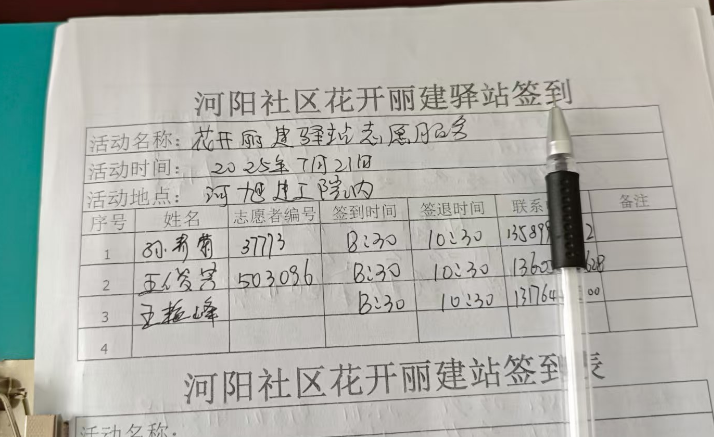 河阳社区花开丽建驿站签到
活动名称：花开丽建驿站志愿服务
活动时间：2025年7月21日
活动地点：河旭建工院内
序号 姓名 志愿者编号 签到时间 签退时间 联系 备注
1 孙秀菊 37773 8:30 10:30 135899 2
2 王俊 503096 8:30 10:30 1360 628
3 王 峰 8:30 10:30 131764 00
4
河阳社区花开丽建驿站签到表
活动名称：